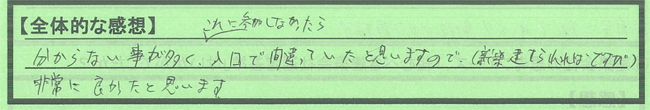 【全体的な感想】
これに参加しなかったら
分からない事が多く、入口で間違っていたと思いますので、(新築建てられればですが)
非常に良かったと思います